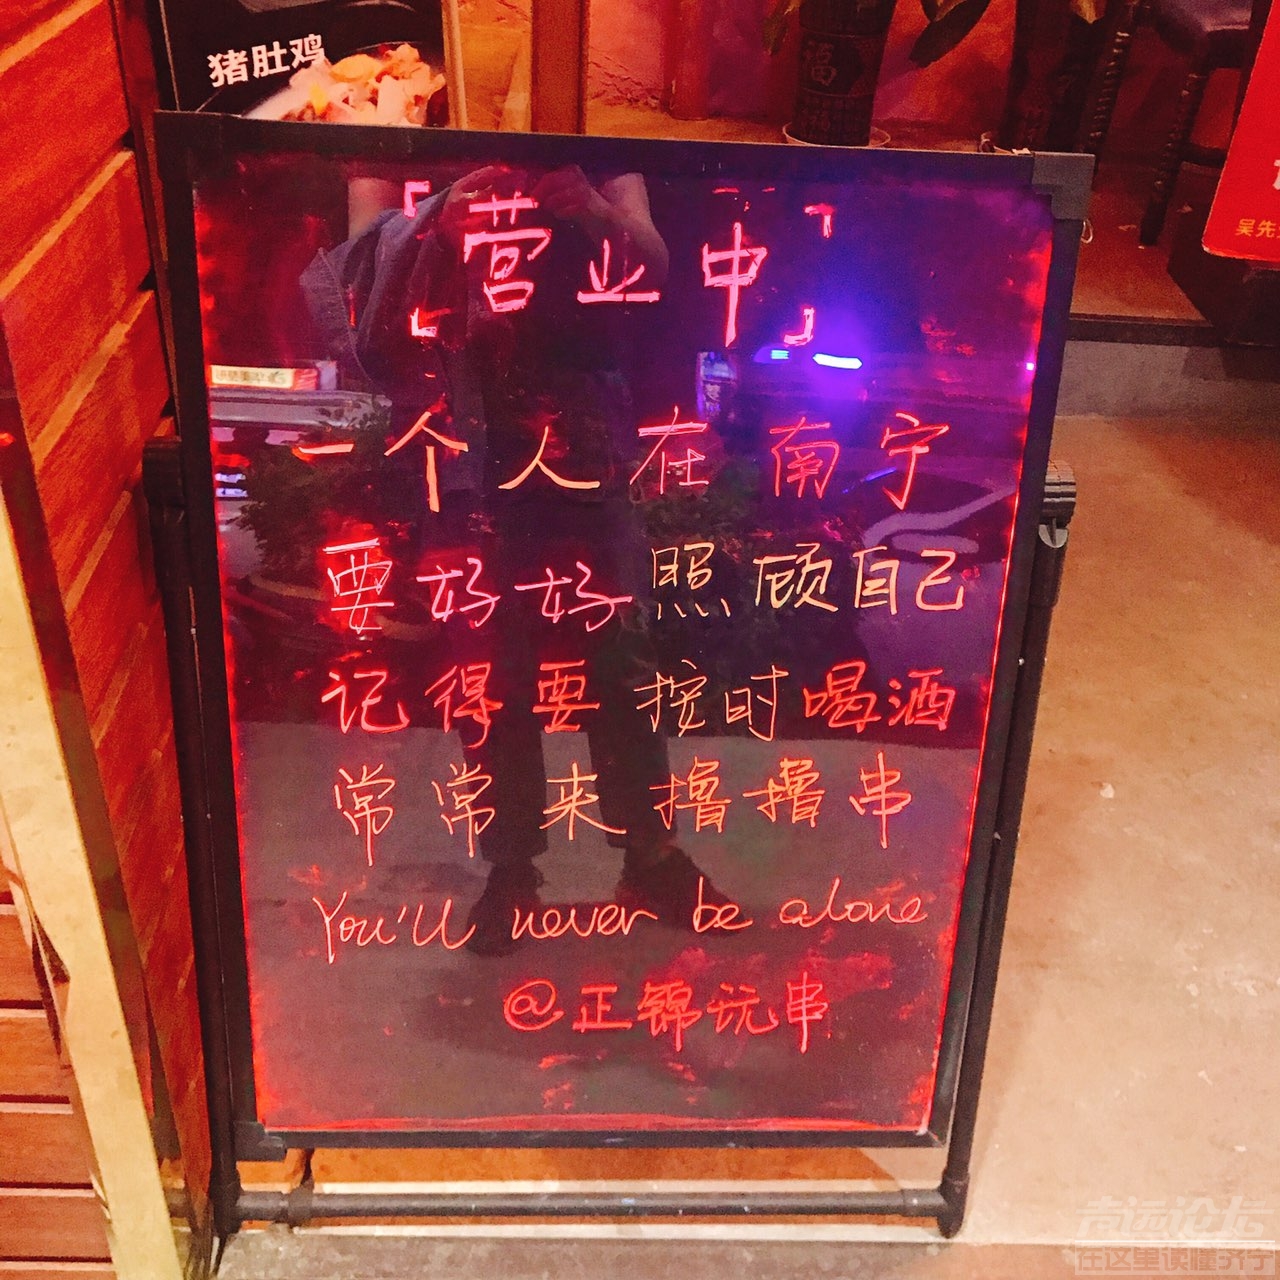 猪肚鸡
福
吴先
「营业中」
一个人在南宁
要好好照顾自己
记得要按时喝酒
常常来撸撸串
You'll never be alone
@正锦玩串
在这里读懂齐宁